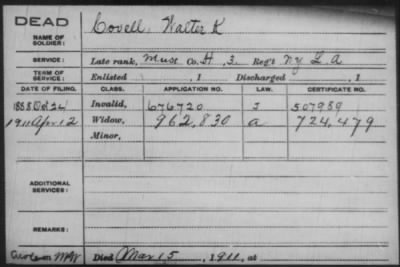 DEAD
NAME OF SOLDIER:
Covell, Walter K
SERVICE:
Late rank, Mus. Co. H, 3, Reg't N.Y. L. A
TERM OF SERVICE:
Enlisted , 1 Discharged , 1
DATE OF FILING. CLASS. APPLICATION NO. LAW. CERTIFICATE NO.
1888 Oct 24 Invalid, 676720 J 507989
1911 Apr 12 Widow, 962,830 a 724,479
Minor,
ADDITIONAL SERVICES:
REMARKS:
Died Mar 15, 1911, at